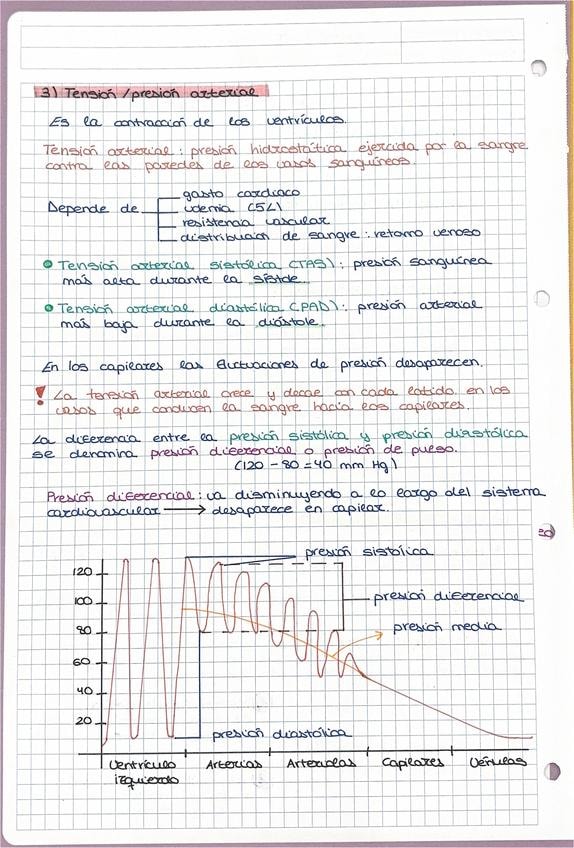 3) Tensión/presión arterial
Es la contracción de los ventrículos.
Tensión arterial: presión hidrostática ejercida por la sangre
contra las paredes de los vasos sanguíneos.
gasto cardíaco
Depende de
volemia (5L)
resistencia vascular
distribución de sangre: retorno venoso
Tensión arterial sistólica (TAS): presión sanguínea
más alta durante la sístole.
Tensión arterial diastólica (PAD): presión arterial
más baja durante la diástole.
En los capilares las fluctuaciones de presión desaparecen.
! La tensión arterial crece y decae con cada latido. en los
vasos que conducen la sangre hacia los capilares.
La diferencia entre la presión sistólica y presión diastólica
se denomina presión diferencial o presión de pulso.
(120 - 80 = 40 mm Hg)
Presión diferencial: va disminuyendo a lo largo del sistema
cardiovascular → desaparece en capilar.
presión sistólica
120
100
presión diferencial
80
presión media
60
40
20
presión diastólica
Ventrículo
izquierdo
Arterias
Arteriolas
Capilares
Vénulas